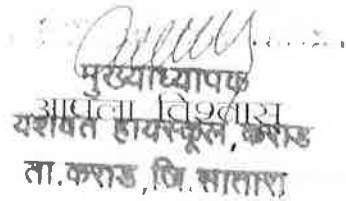 मुख्याध्यापक
आपला विश्वासू
यशवंत हायस्कूल, कराड
ता. कराड, जि. सातारा